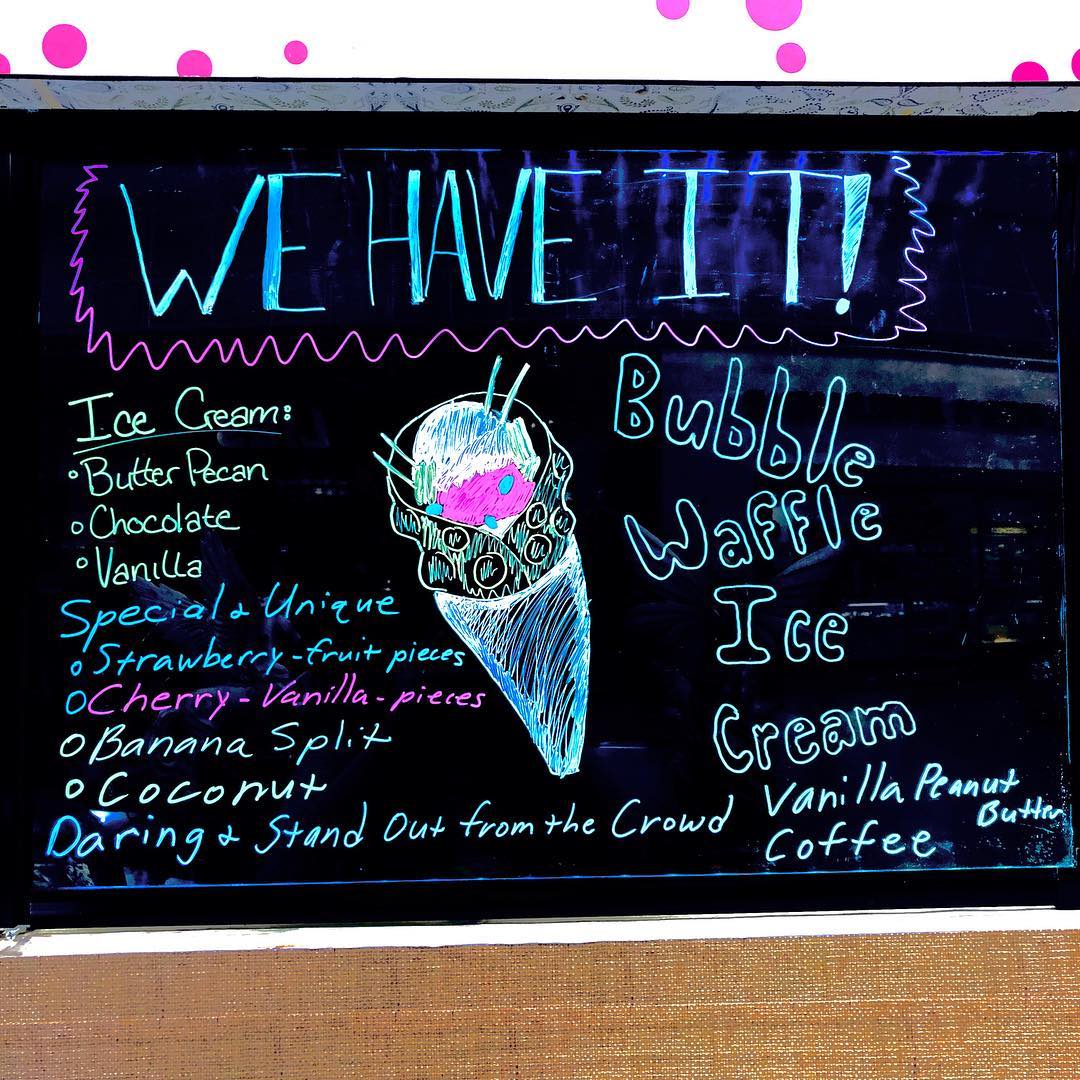 WE HAVE IT!
Ice Cream:
Butter Pecan
Chocolate
Vanilla
Special & Unique
Strawberry-fruit pieces
Cherry-Vanilla-pieces
Banana Split
Coconut
Daring & Stand Out from the Crowd
Bubble
Waffle
Ice
Cream
Vanilla Peanut
Butter
Coffee